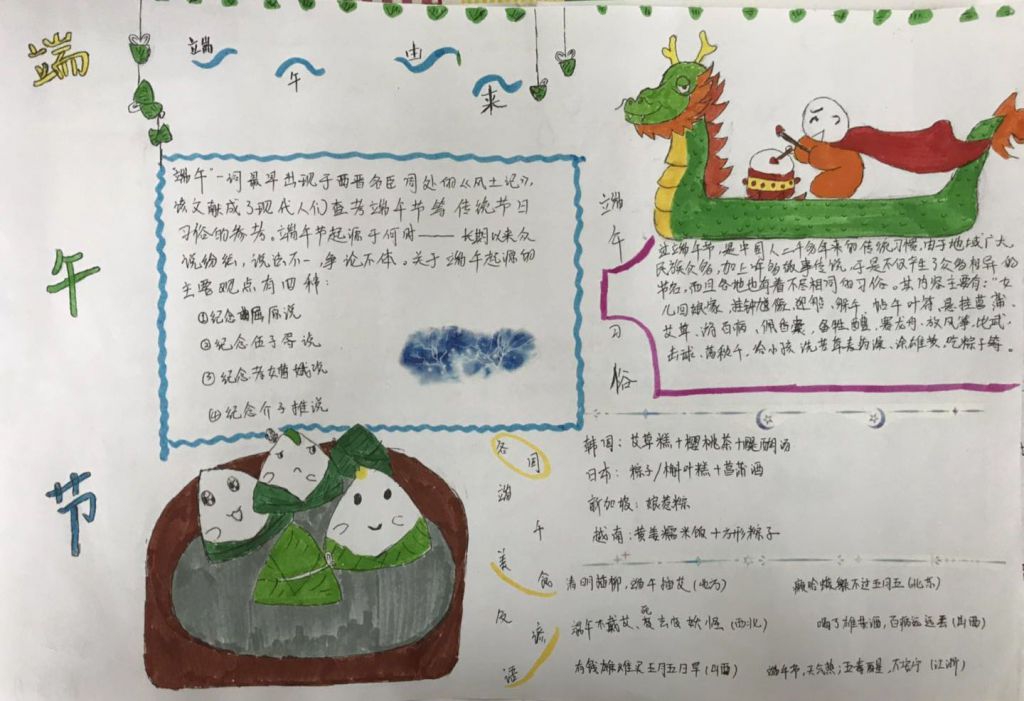 端
午
节
端午由来
端午"一词最早出现于西晋名臣周处的《风土记》,
该文献成了现代人们查考端午节等传统节日
习俗的参考。端午节起源于何时——长期以来众
说纷纭,说法不一,争论不休。关于端午起源的
主要观点有四种:
①纪念屈原说
②纪念伍子胥说
③纪念孝女曹娥说
④纪念介子推说
端午习俗
过端午节,是中国人二千多年来的传统习惯,由于地域广大,
民族众多,加上许多故事传说,于是不仅产生了众多相异的
节名,而且各地也有着不尽相同的习俗。其内容主要有:"女
儿回娘家,挂钟馗像,迎鬼船、躲午,帖午叶符,悬挂菖蒲、
艾草,游百病,佩香囊,备牲醴,赛龙舟,放风筝,比武,
击球、荡秋千,给小孩涂雄黄,吃粽子等。
各国端午美食及谚语
韩国:艾草糕+樱桃茶+醍醐汤
日本:粽子/槲叶糕+菖蒲酒
新加坡:娘惹粽
越南:黄姜糯米饭+方形粽子
清明插柳,端午插艾(北方)
癞蛤蟆躲不过五月五(北京)
端午不戴艾,死去变妖怪(西北)
喝了雄黄酒,百病远远丢(山西)
有钱难买五月五日旱(山西)
端午节,天气热;五毒醒,不安宁(江浙)